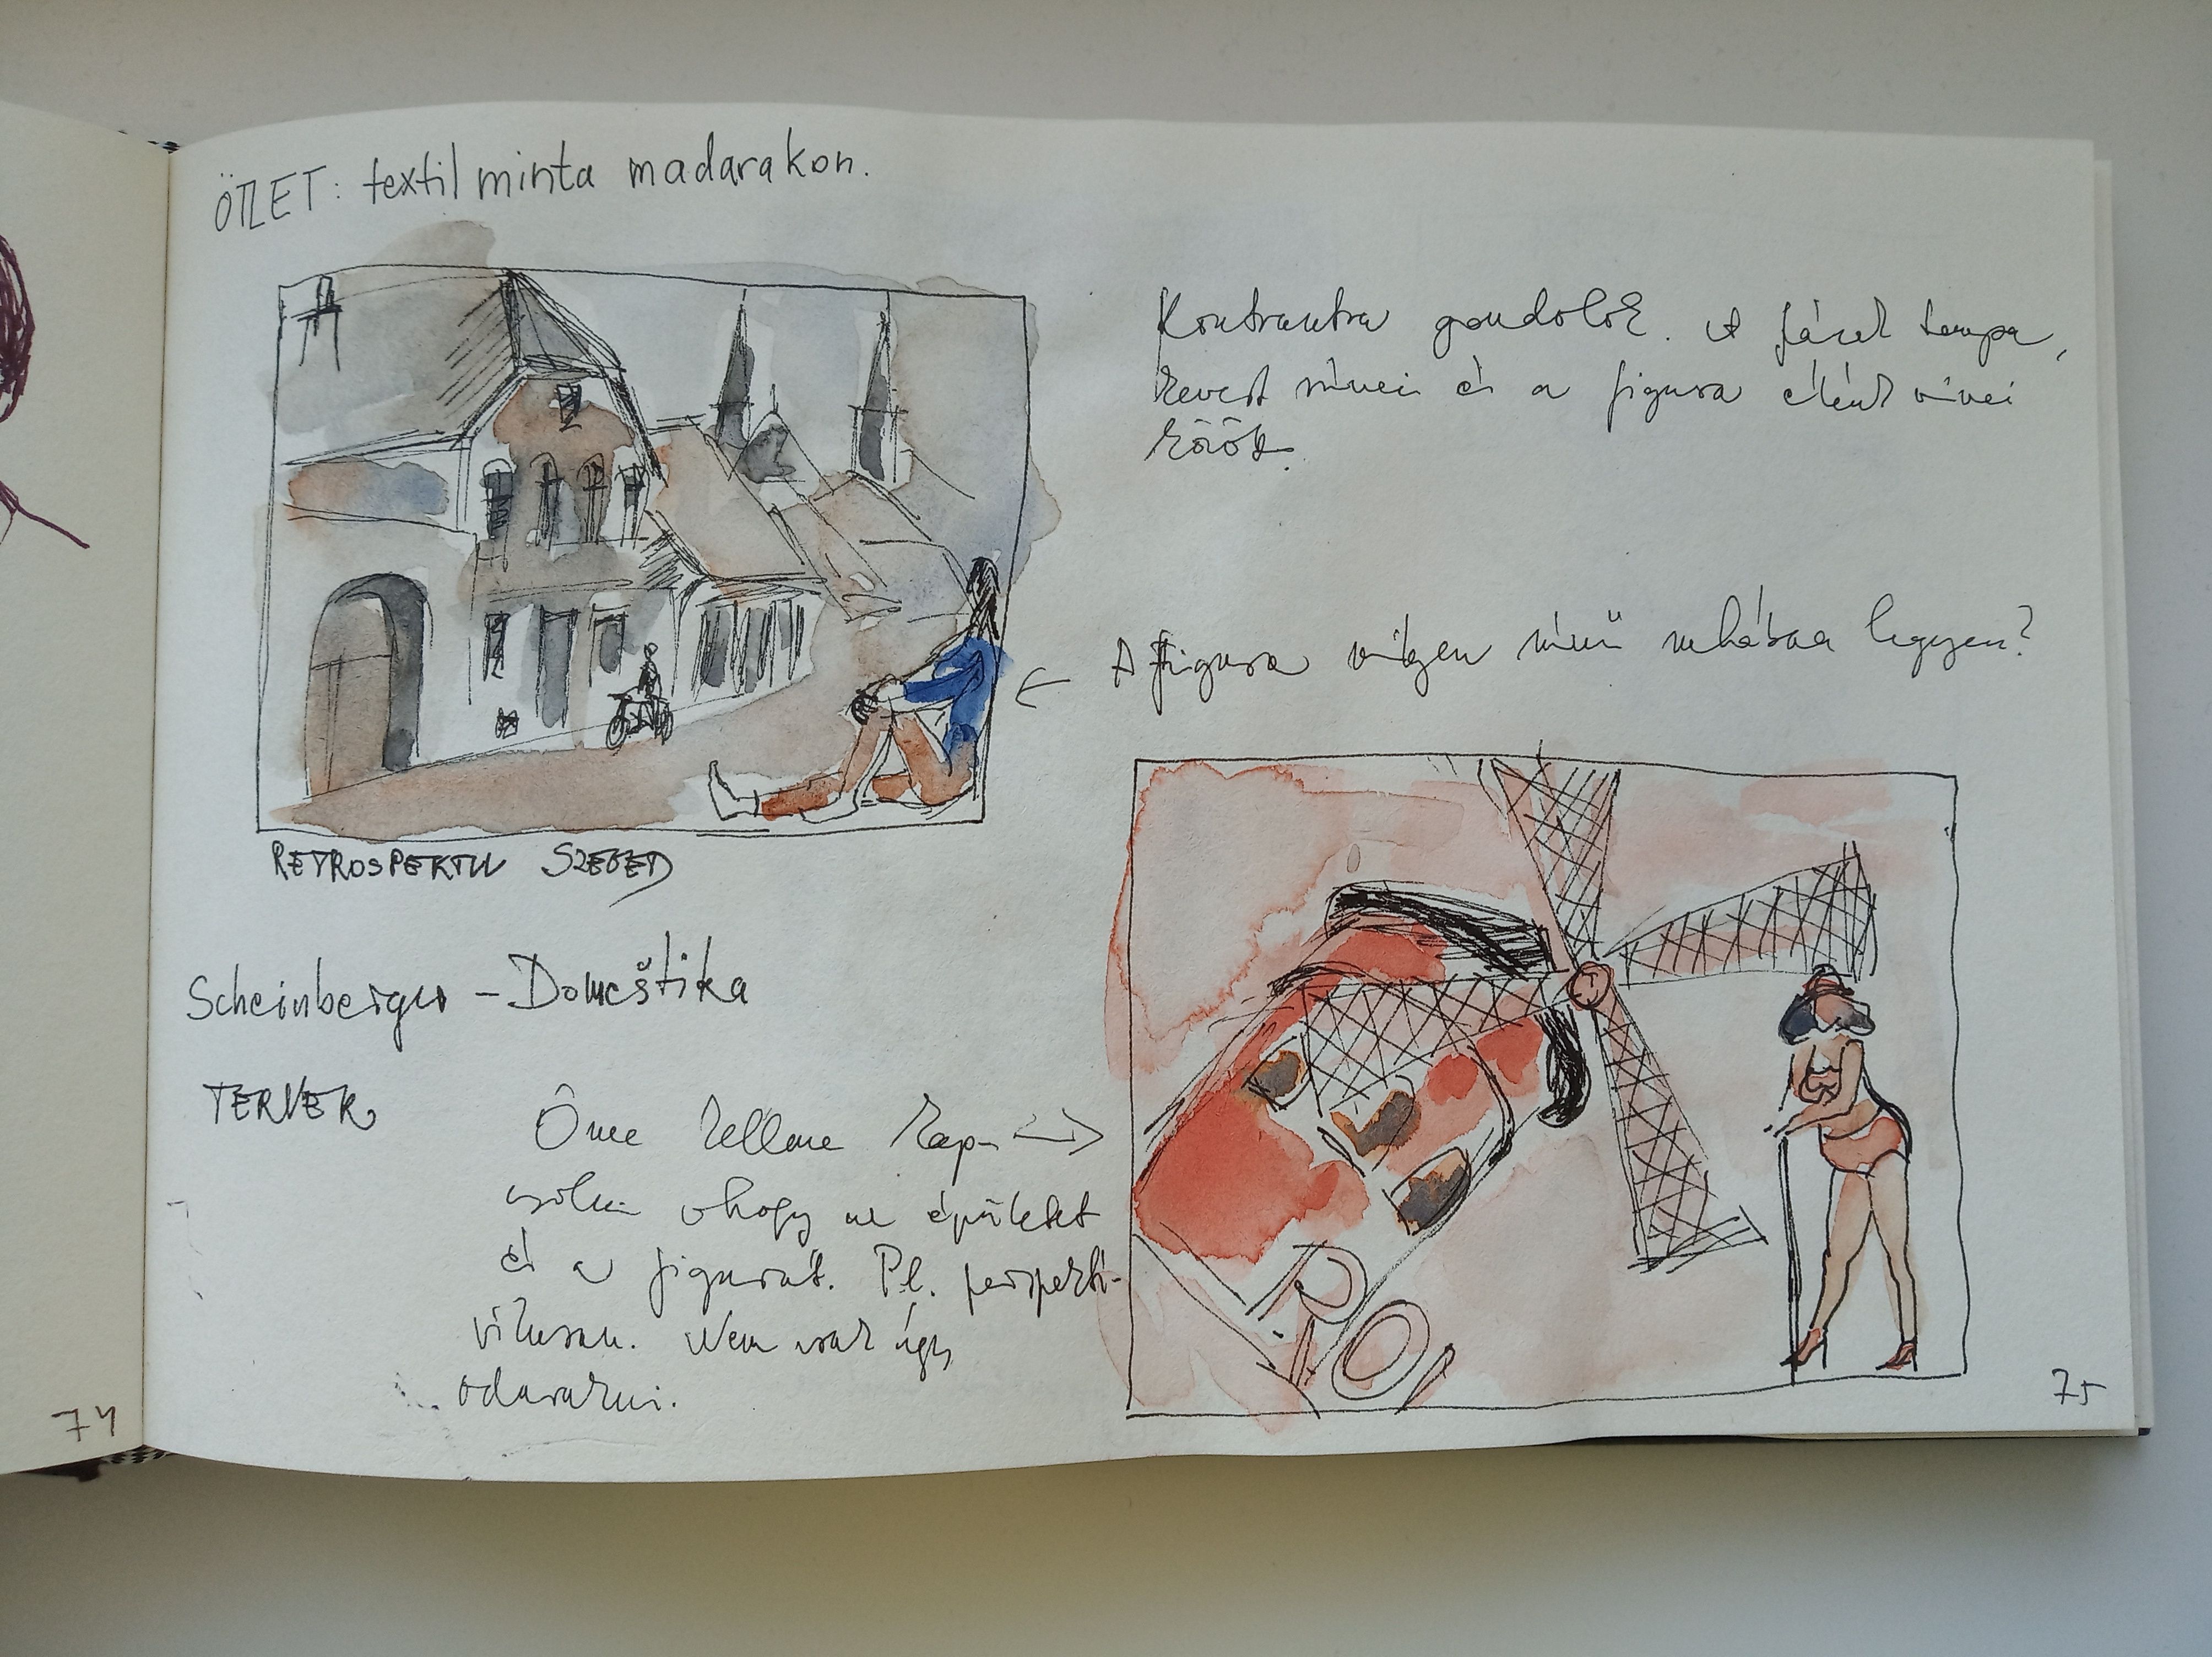 ÖTLET: textil minta madarakon.
Kontrasztra gondolok. A házak tompa,
kevert színei és a figura élénk színei
között.
← A figura milyen színű ruhában legyen?
RETROSPEKTIV SZEGED
Scheinberger – Domeštika
TERVEK
Össze kellene kap- →
csolni ahogy az épületet
és a figurát. Pl. perspektí-
vikusan. Nem csak úgy
odarakni.
RO
74
75